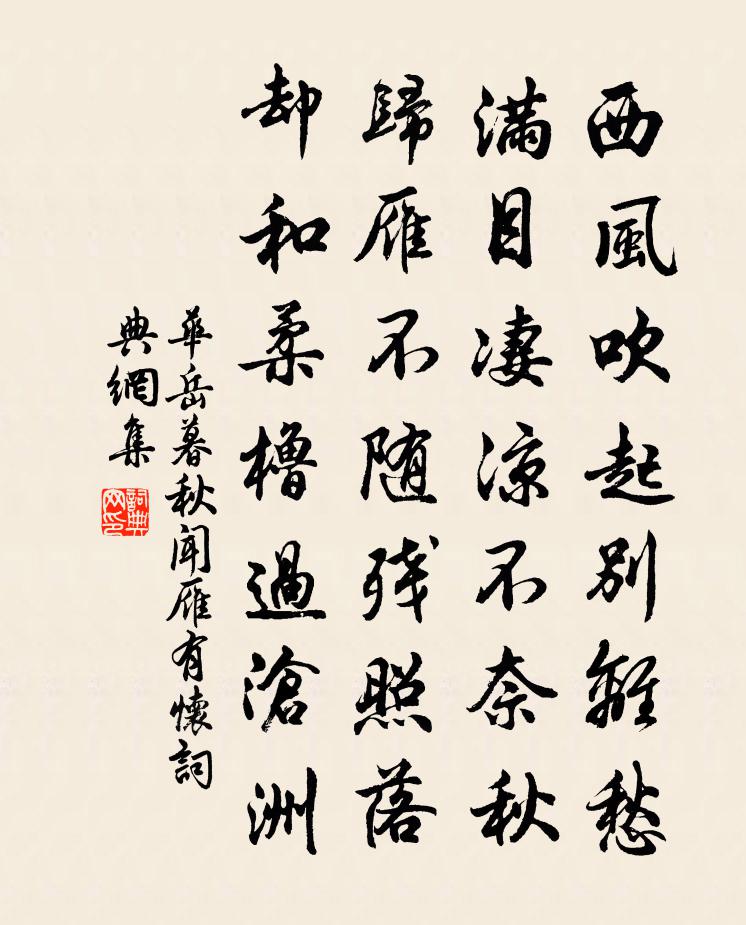 西風吹起別離愁
滿目凄涼不奈秋
歸雁不随残照落
却和柔櫓過滄洲
華岳暮秋聞雁有懷詞
典網集
詞典
网印